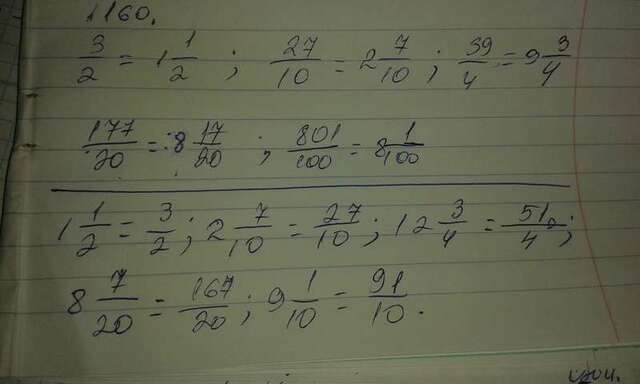 1160.
3/2 = 1 1/2 ; 27/10 = 2 7/10 ; 39/4 = 9 3/4
177/20 = 8 17/20 ; 801/100 = 8 1/100
1 1/2 = 3/2 ; 2 7/10 = 27/10 ; 12 3/4 = 51/4 ;
8 7/20 = 167/20 ; 9 1/10 = 91/10 .